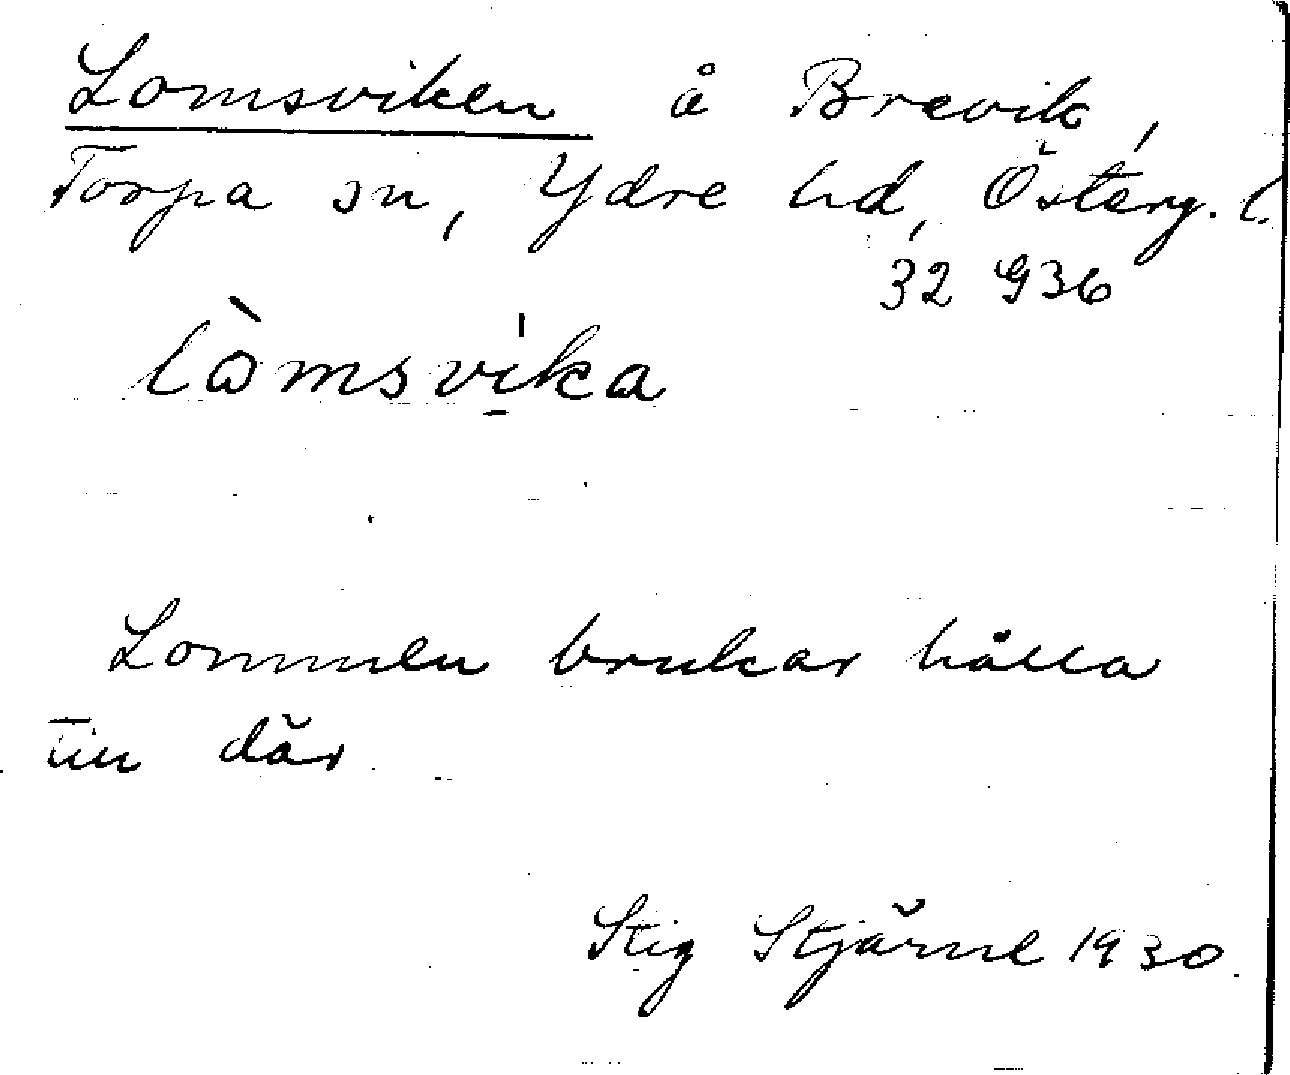 Lomsviken å Brevik,
Torpa sn, Ydre hd, Österg. l.
32 G36
lòmsvika
Lommen brukar hålla
till där
Stig Stjärne 1930